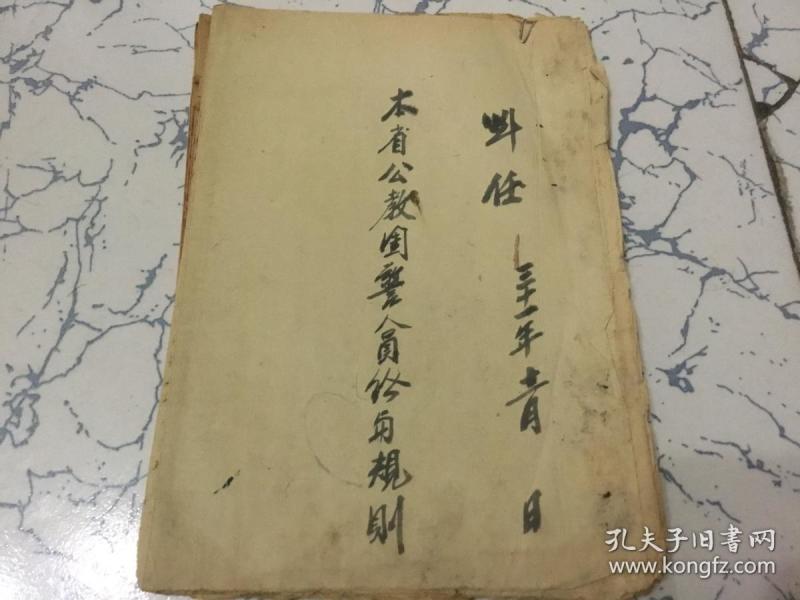 任 三十一年十二月 日
本省公教团警人员给与规则
孔夫子旧书网
www.kongfz.com